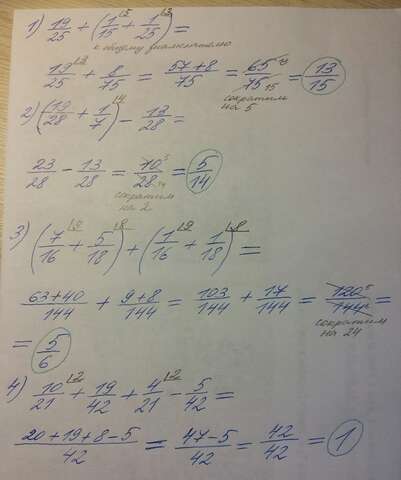 1) 19/25 + (1/15 + 1/25) =
к общему знаменателю
19/25 + 8/75 = 57+8/75 = 65/75 = 13/15
сократим
на 5
2) (19/28 + 1/7) - 13/28 =
23/28 - 13/28 = 10/28 = 5/14
сократим
на 2
3) (7/16 + 5/18) + (1/16 + 1/18) =
63+40/144 + 9+8/144 = 103/144 + 17/144 = 120/144 =
сократим
на 24
= 5/6
4) 10/21 + 19/42 + 4/21 - 5/42 =
20+19+8-5/42 = 47-5/42 = 42/42 = 1